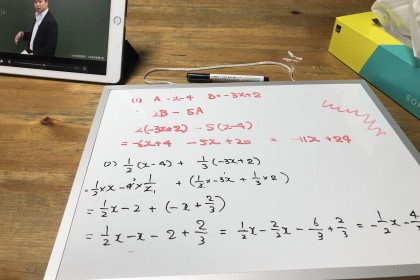 (1) A = x-4 B = -3x+2
2B - 5A
2(-3x+2) - 5(x-4)
= -6x+4 -5x+20 = -11x+24
(2) 1/2(x-4) + 1/3(-3x+2)
= 1/2 × x - 4 × 1/2 + (1/3 × -3x + 1/3 × 2)
= 1/2x - 2 + (-x + 2/3)
= 1/2x - x - 2 + 2/3 = 1/2x - 2/2x - 6/3 + 2/3 = -1/2x - 4/3